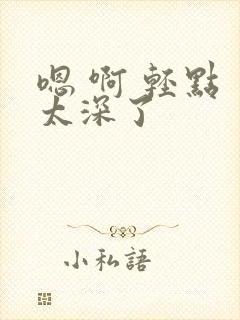 嗯 啊 輕點
太深了
小私語